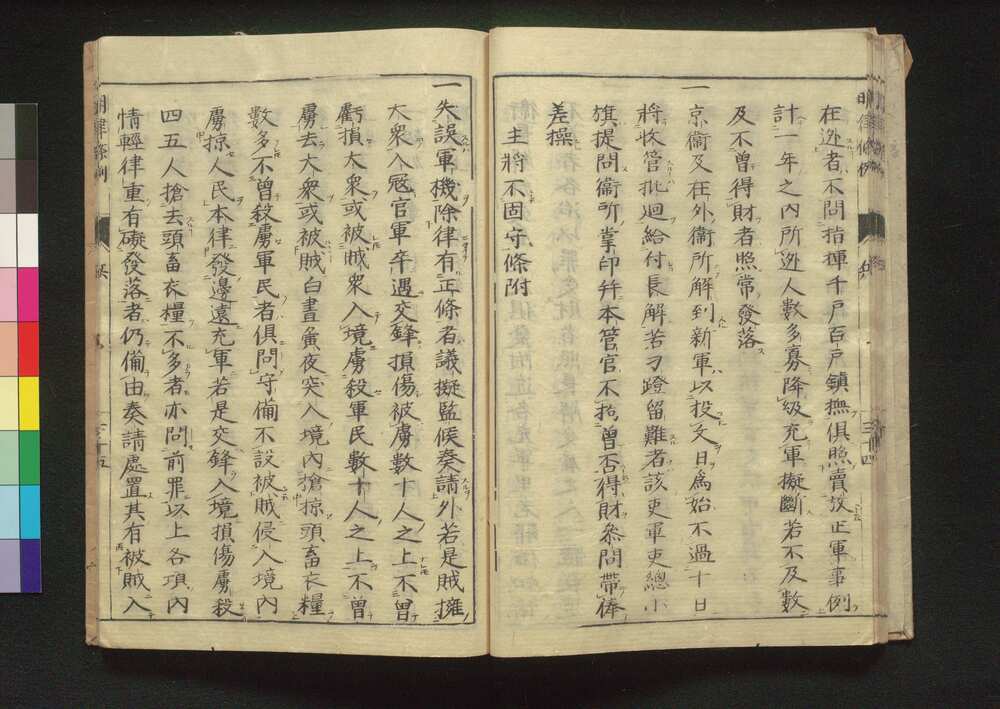 在逃者不問指揮千戶百戶鎮撫俱照賣放正軍事例
計一年之內所逃人數多寡降級充軍擬斷若不及數
及不曾得財者照常發落
一京衞及在外衞所解到新軍以投文日為始不過十日
將收管批迴給付長解若刁蹬留難者該吏軍吏總小
旗提問衞所掌印幷本管官不拘曾否得財參問帶俸
差操
主將不固守條附
一失誤軍機除律有正條者議擬監候奏請外若是賊擁
大衆入寇官軍卒遇交鋒損傷被虜數十人之上不曾
虧損大衆或被賊衆入境虜殺軍民數十人之上不曾
虜去大衆或被賊白晝夤夜突入境內搶掠頭畜衣糧
數多不曾殺虜軍民者俱問守備不設被賊侵入境內
虜掠人民本律發邊遠充軍若是交鋒入境損傷虜殺
四五人搶去頭畜衣糧不多者亦問前罪以上各項內
情輕律重有礙發落者仍備由奏請處置其有被賊入
明律條例
三十四
三十五